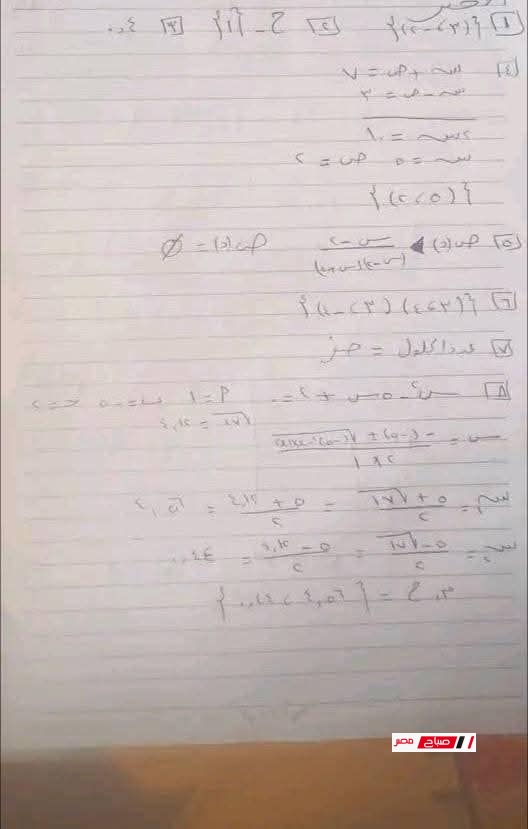 [١] {(٣، -٢)} [٢] ح - {١} [٣] ٤,٠
[٤] س + ص = ٧
س - ص = ٣
٢س = ١٠
س = ٥ ص = ٢
{(٥، ٢)}
[٥] ص(٢) = ∅
[٦] {(٣، ٤) (٣، -٤)}
[٧] عدد الحلول = صفر
[٨] س² - ٥س + ٢ = ٠ ٩ = ١ ب = -٥ ح = ٢
√١٧ = ٤,١٢
س = (-(-٥) ± √((-٥)² - ٤×١×٢)) / (٢×١)
س = (٥ + √١٧) / ٢ = (٥ + ٤,١٢) / ٢ = ٤,٥٦
س = (٥ - √١٧) / ٢ = (٥ - ٤,١٢) / ٢ = ٠,٤٤
م.ح = {٤,٥٦، ٠,٤٤}
صباح مصر